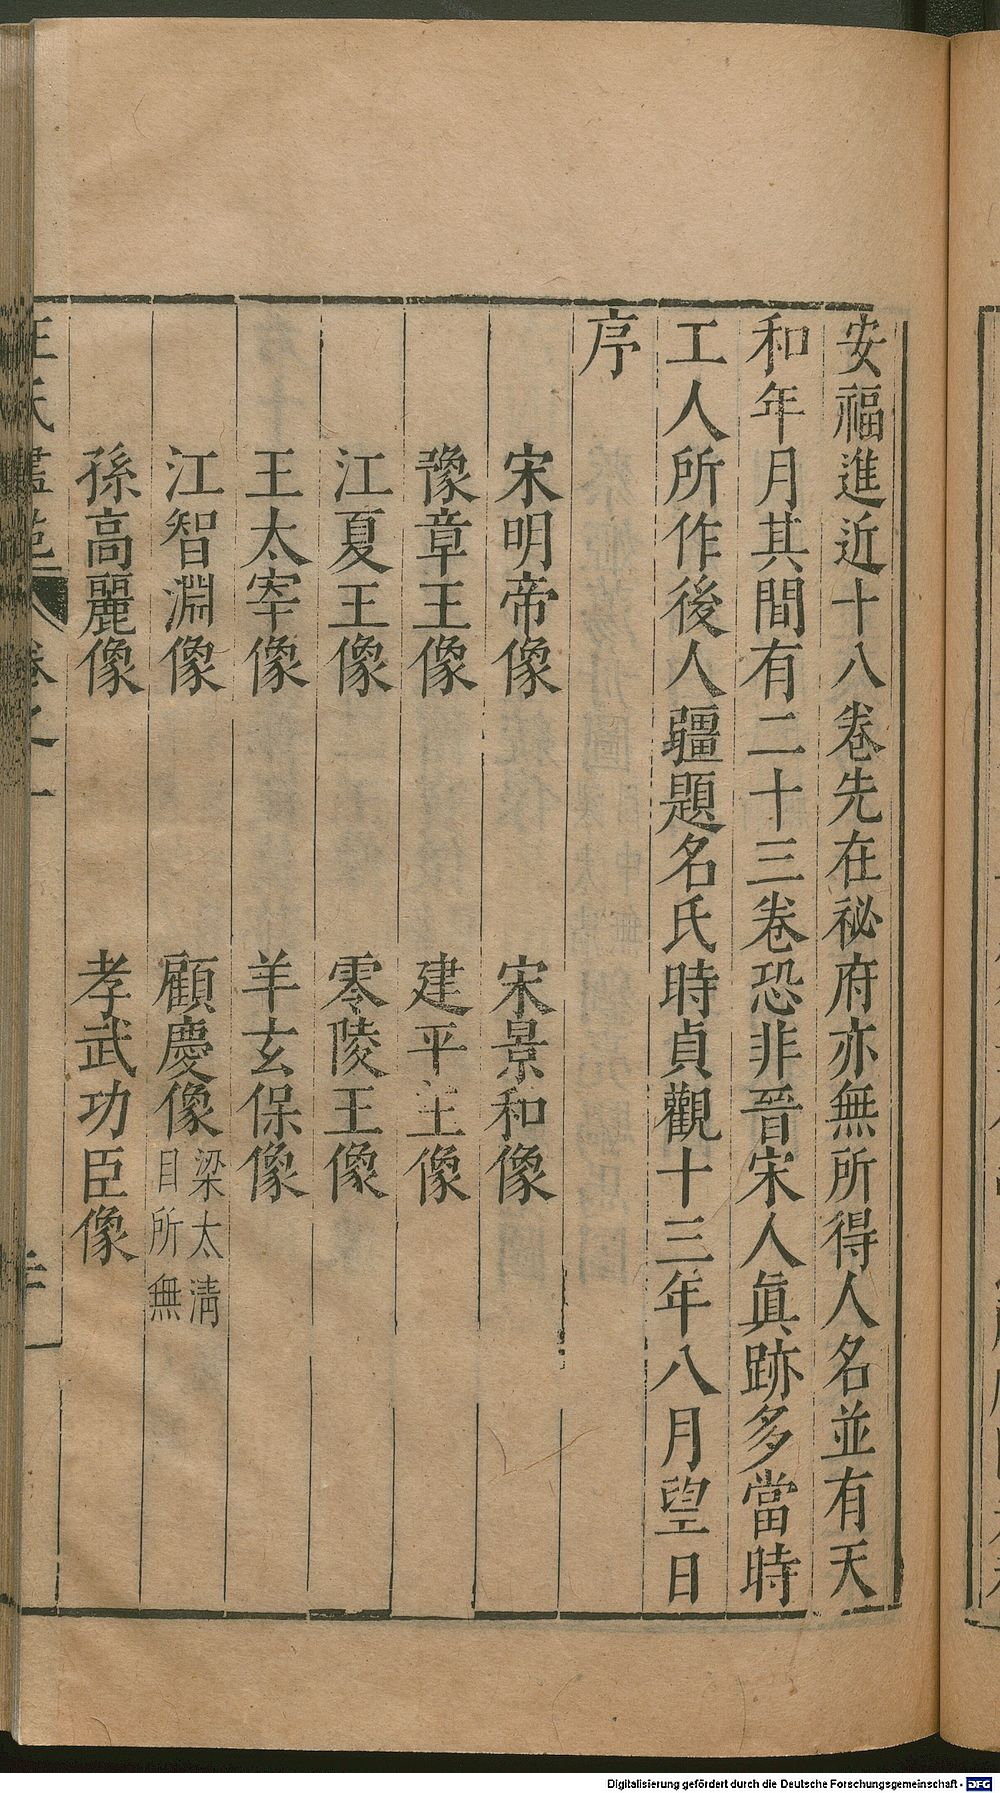 安福進近十八卷先在祕府亦無所得人名並有天
和年月其間有二十三卷恐非晉宋人真跡多當時
工人所作後人疆題名氏時貞觀十三年八月望日
序
宋明帝像 宋景和像
豫章王像 建平王像
江夏王像 零陵王像
王太宰像 羊玄保像
江智淵像 顧慶像 梁太清目所無
孫高麗像 孝武功臣像
王氏畫苑 卷之一
Digitalisierung gefördert durch die Deutsche Forschungsgemeinschaft - DFG